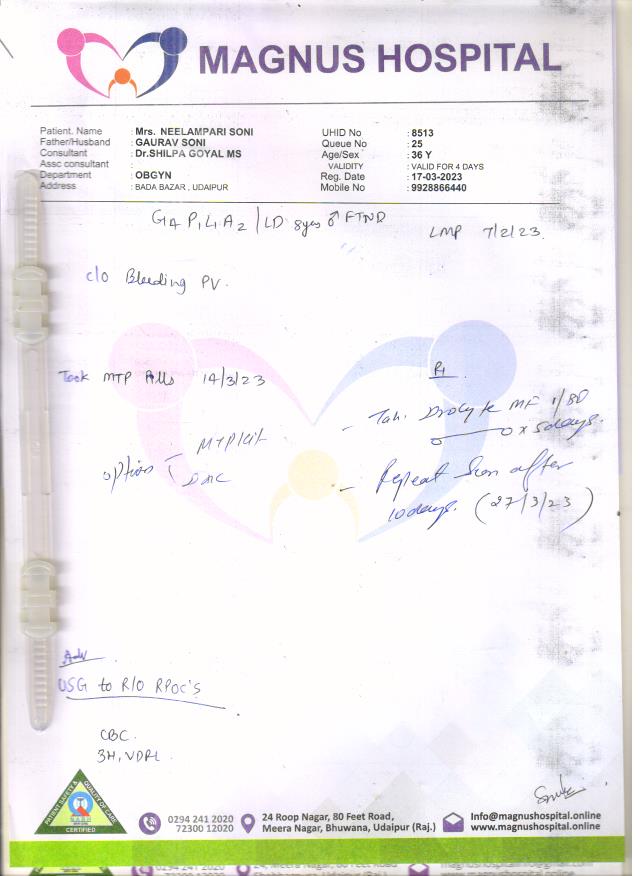 MAGNUS HOSPITAL
Patient. Name : Mrs. NEELAMPARI SONI UHID No : 8513
Father/Husband : GAURAV SONI Queue No : 25
Consultant : Dr.SHILPA GOYAL MS Age/Sex : 36 Y
Assc consultant VALIDITY : VALID FOR 4 DAYS
Department : OBGYN Reg. Date : 17-03-2023
Address : BADA BAZAR, UDAIPUR Mobile No : 9928866440
G4 P1 L1 A2 / LD 8yrs ♂ FTND
LMP 7/2/23.
c/o Bleeding PV.
Took MTP Pills 14/3/23
Options - MTP kit
D&C
R1
- Tab. MF 1/BD
x 5days.
- Repeat Scan after
10days. (27/3/23)
Adv
USG to R/O RPOC'S
CBC.
3H, VDRL.
PATIENT SAFETY & QUALITY OF CARE
CERTIFIED
0294 241 2020
72300 12020
24 Roop Nagar, 80 Feet Road,
Meera Nagar, Bhuwana, Udaipur (Raj.)
Info@magnushospital.online
www.magnushospital.online